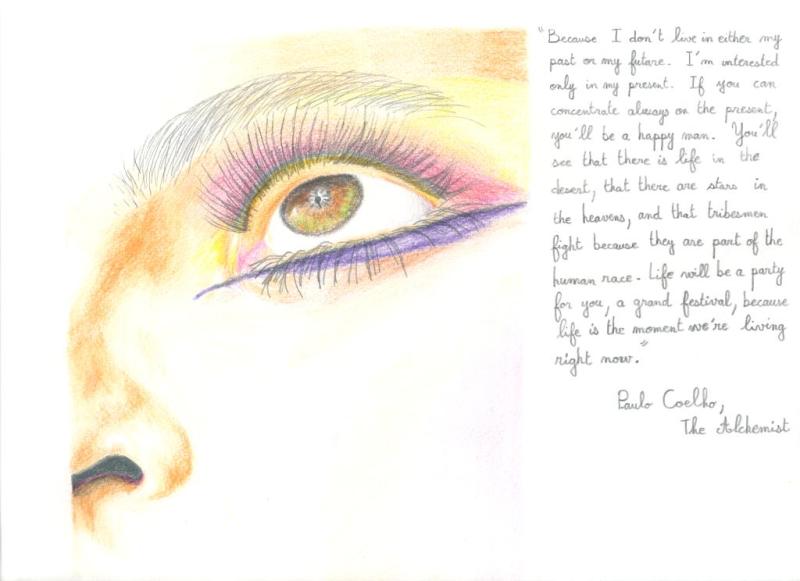 "Because I don't live in either my
past or my future. I'm interested
only in my present. If you can
concentrate always on the present,
you'll be a happy man. You'll
see that there is life in the
desert, that there are stars in
the heavens, and that tribesmen
fight because they are part of the
human race. Life will be a party
for you, a grand festival, because
life is the moment we're living
right now."
Paulo Coelho,
The Alchemist